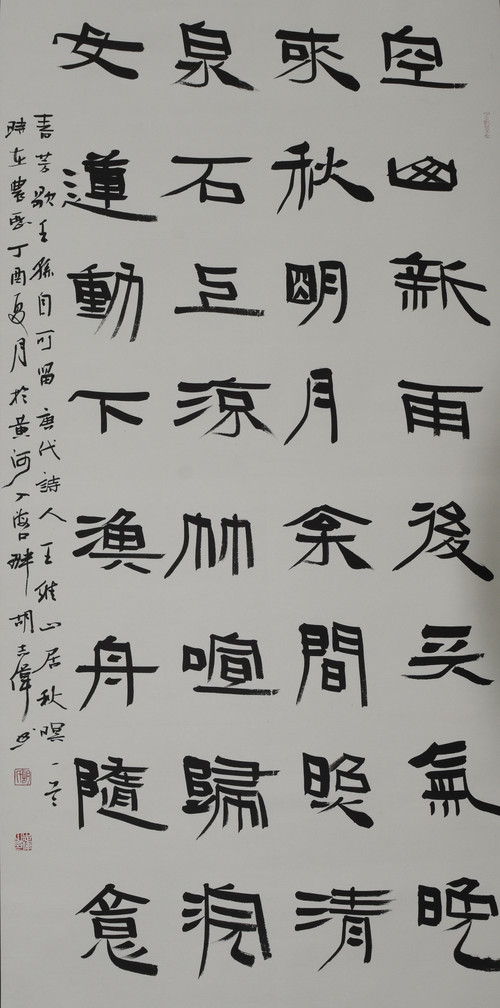 空山新雨後天氣晚
來秋明月松間照清
泉石上流竹喧歸浣
女蓮動下漁舟隨意
春芳歇王孫自可留唐代詩人王維山居秋暝一首
時在農曆丁酉夏月於黄河入海口畔胡志偉書